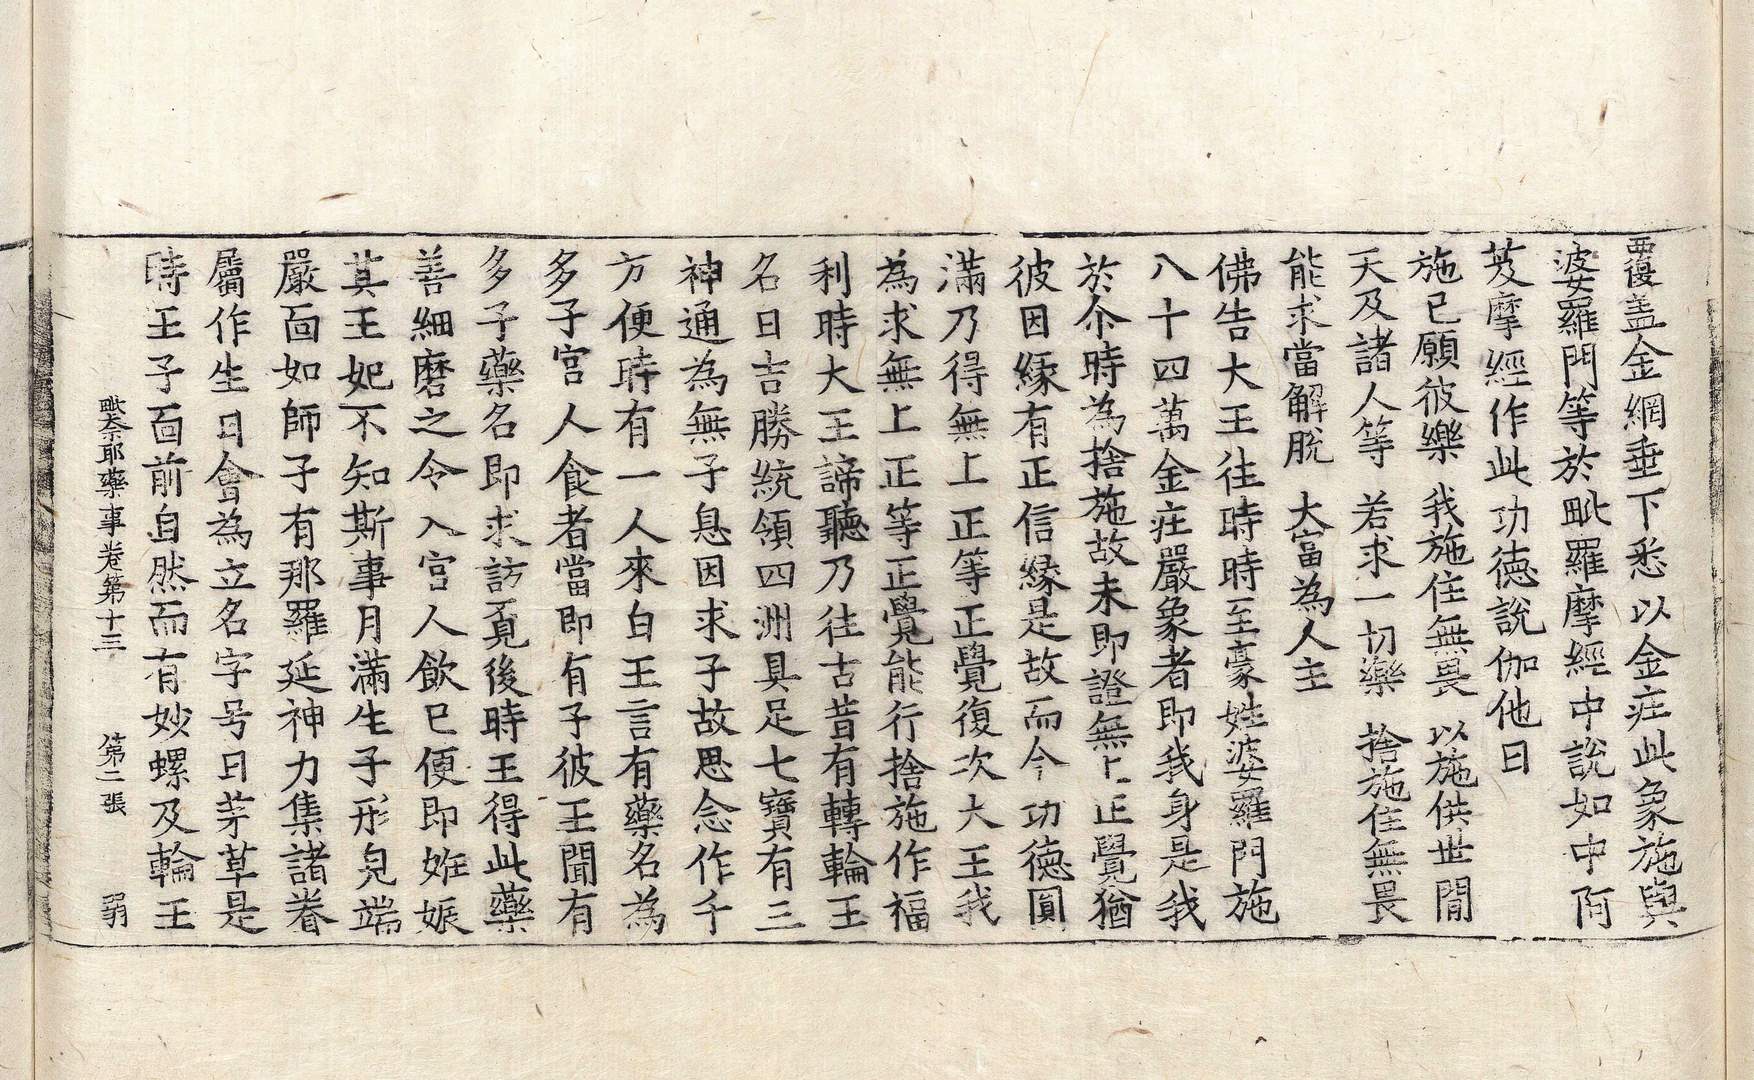 覆盖金網垂下悉以金庄此象施與
婆羅門等於毗羅摩經中說如中阿
芨摩經作此功德說伽他曰
施已願彼樂　我施住無畏　以施供世間
天及諸人等　若求一切樂　捨施住無畏
能求當解脫　大富為人主
佛告大王往時時至豪姓婆羅門施
八十四萬金庄嚴象者即我身是我
於尒時為捨施故未即證無上正覺猶
彼因緣有正信緣是故而今功德圓
滿乃得無上正等正覺復次大王我
為求無上正等正覺能行捨施作福
利時大王諦聽乃往古昔有轉輪王
名曰吉勝統領四洲具足七寶有三
神通為無子息因求子故思念作千
方便時有一人來白王言有藥名為
多子宮人食者當即有子彼王聞有
多子藥名即求訪覓後時王得此藥
善細磨之令入宮人飲已便即姙娠
其王妃不知斯事月滿生子形皃端
嚴面如師子有那羅延神力集諸眷
屬作生日會為立名字号曰茅草是
時王子面前自然而有妙螺及輪王
毗奈耶藥事卷第十三　第二張　弱